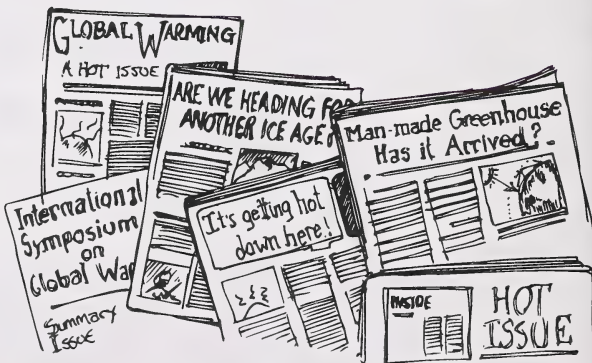 GLOBAL WARMING
A HOT ISSUE
ARE WE HEADING FOR
ANOTHER ICE AGE
Man-made Greenhouse
Has it Arrived?
International
Symposium
on
Global Wa
Summary
Issue
It's getting hot
down here!
INSIDE
HOT
ISSUE